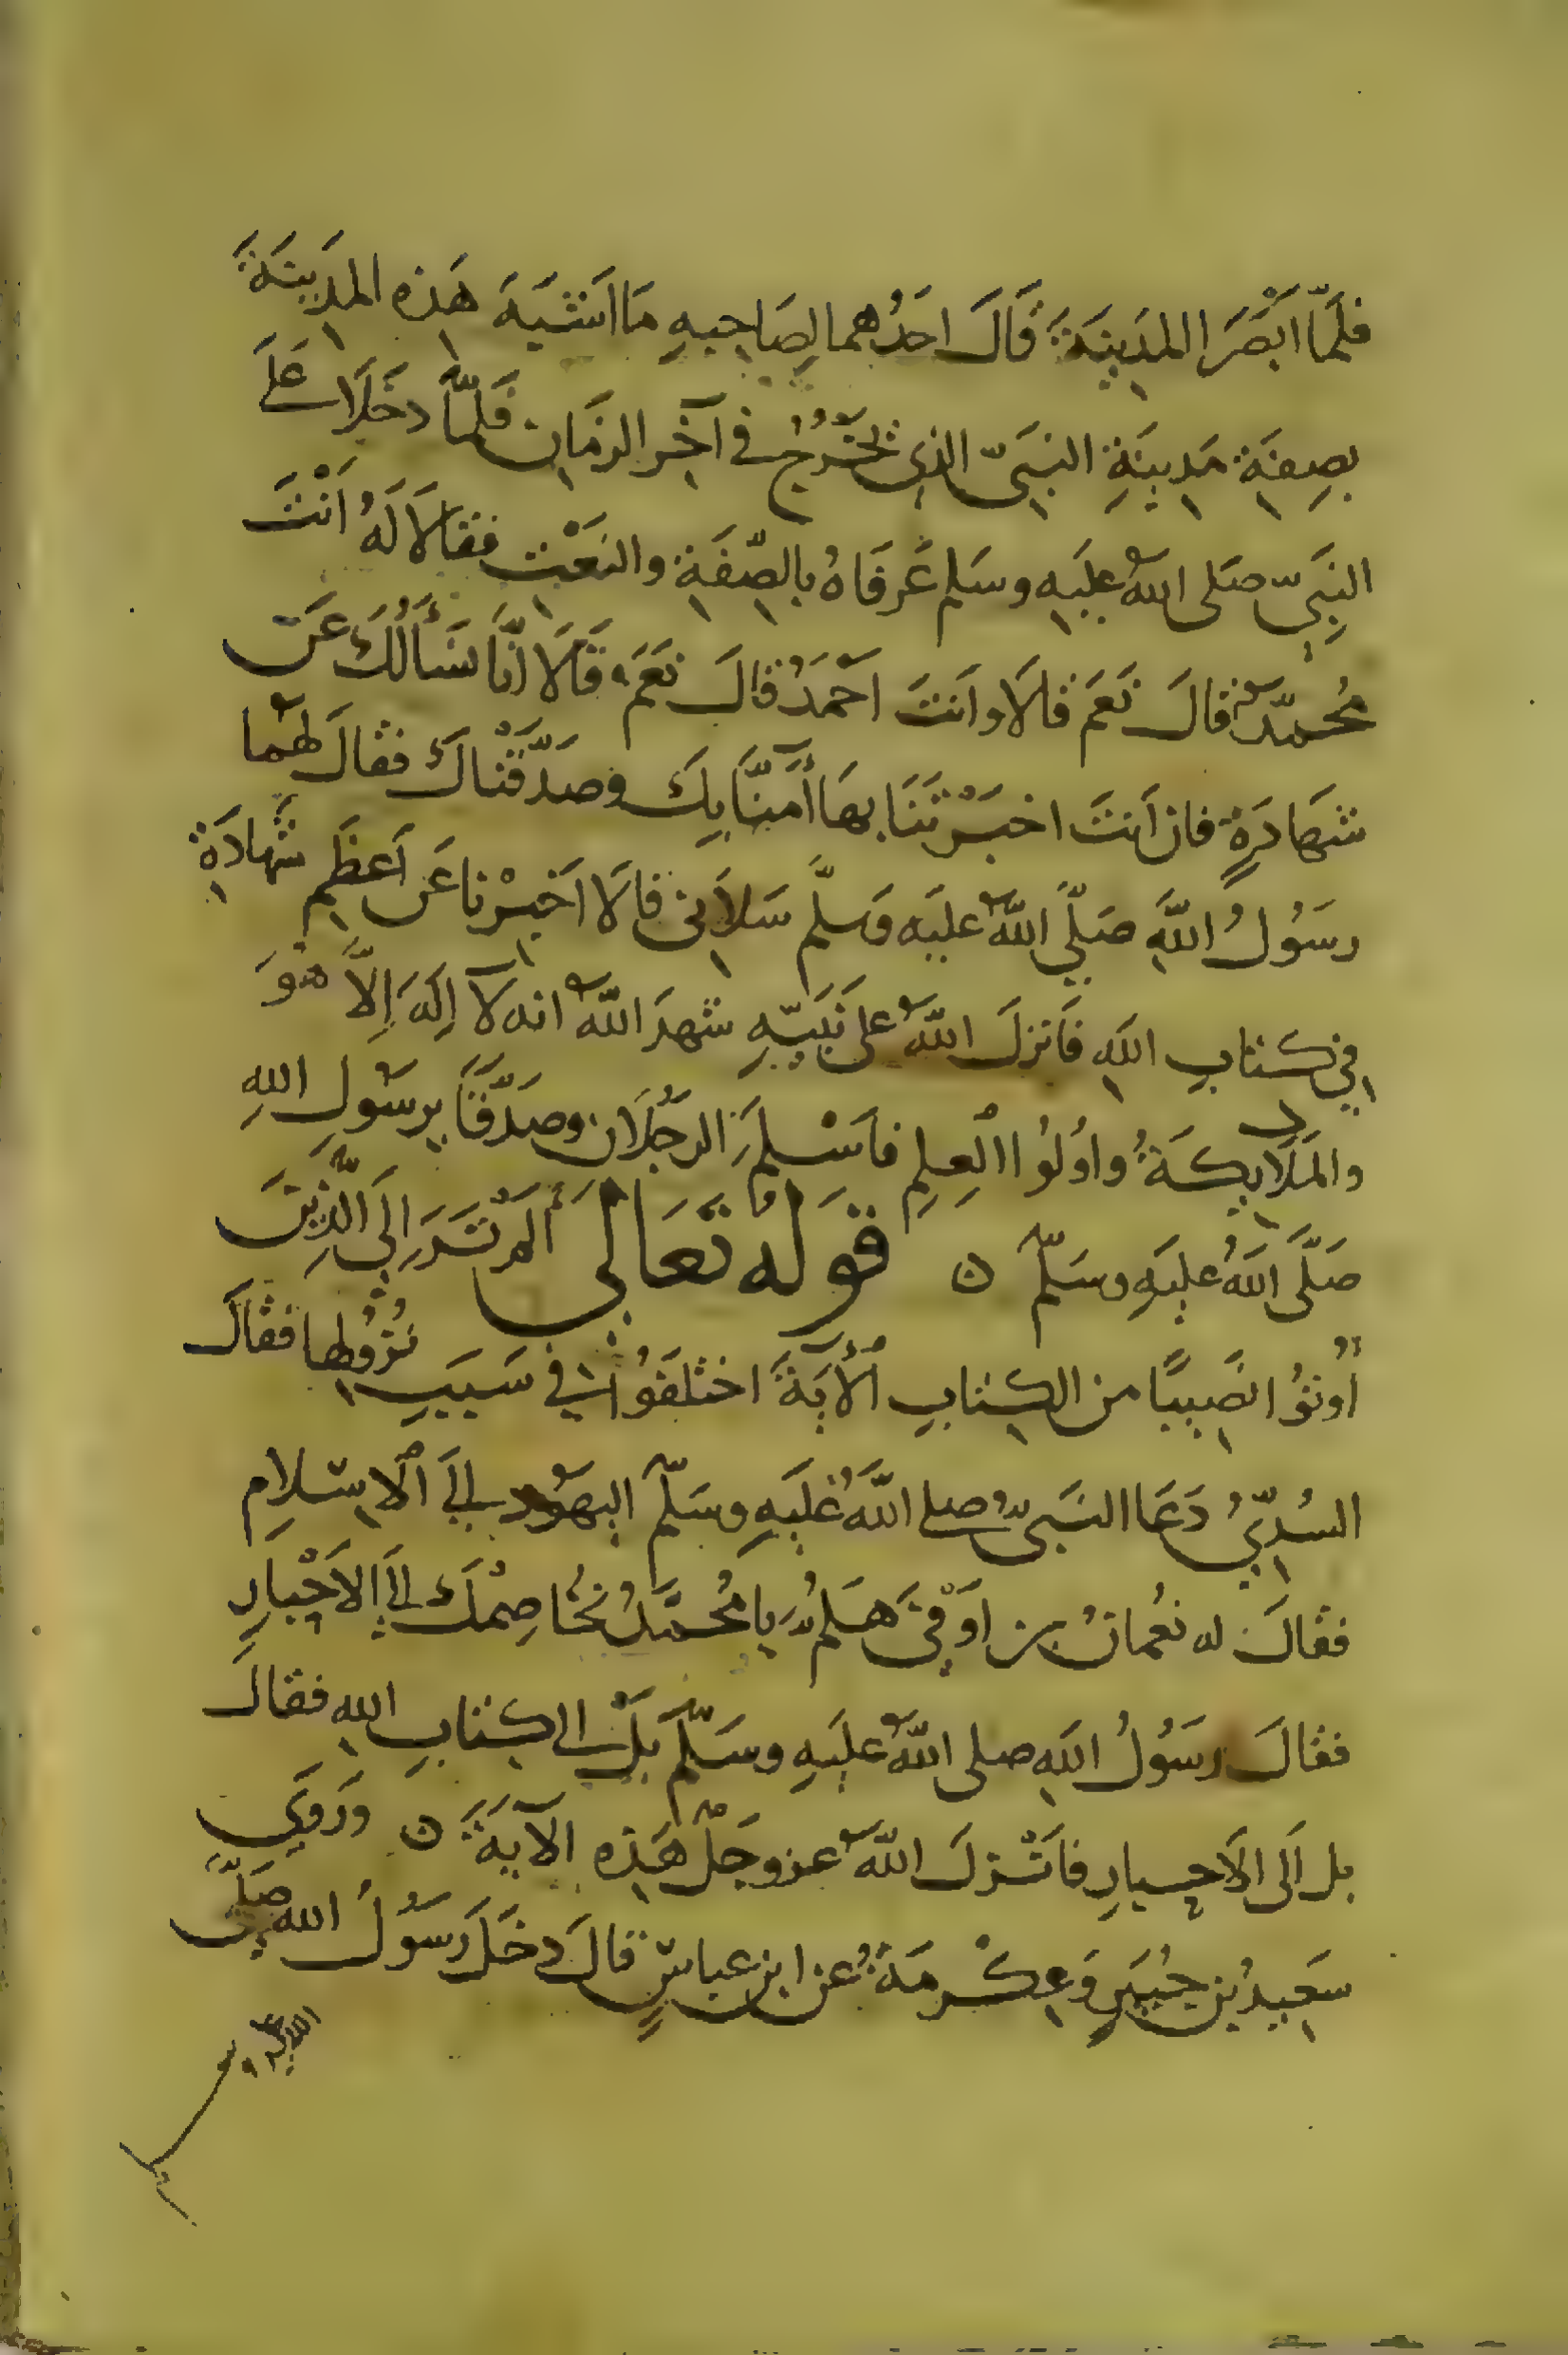 فَلَمَّا اَبْصَرَا المَدِينَةَ قَالَ احَدُهما لِصَاحِبِهِ مَا اَشْبَهَ هَذِه المَدِينَةَ
بِصِفَةِ مَدِينَةِ النَبيّ الذِى يَخْرُجُ فى آخِرِ الزمَانِ فَلمَّا دخَلَا عَلَى
النَبِيّ صَلى اللهُ عليَهِ وسَلم عَرفَاهُ بالصِّفَةِ والنَعْتِ فقَالَا لَهُ اَنْتَ
مُحمدٌ قالَ نَعَم قالَا واَنتَ اَحْمَدُ قالَ نَعَم قَالَا اِنَّا نَسْأَلُكَ عَنْ
شَهَادَةٍ فان اَنتَ اخبَرْتَنَا بهَا أمَنَّا بِكَ وصَدَّقْنَاكَ فقالَ لهمَا
رسَوُلُ اللَّهِ صَلَّي اللَّهُ عليَه وَسَلَّم سَلَانِى قالَا اَخبِرْنا عَن اَعظَمِ شَهادَةٍ
فِى كتابِ اللهِ فَانزلَ اللَّهُ على نَبيّهِ شهِدَ اللَّهُ انه لَا اِلَهَ اِلَّا هُوَ
والمَلَايِكَةُ واوُلوُا الْعِلمِ فاَسْلمَ الرجُلَان وصَدَّقَا برسَوُلِ اللهِ
صَلَّى اللهُ عليَهِ وسَلّم ٥ قَوله تَعَالَى أَلَمْ تَرَ اِلَى الَّذِينَ
أُوتوُا نَصِيبًا من الكِتابِ الْآيَةَ اختلَفَوُا فى سَبَبِ نزُوُلها فقالَ
السُدِّيُّ دَعَا النَبىُّ صلى اللَّهُ عَليَهِ وسَلّمَ اليهَوُد الَى الْاِسْلامِ
فقالَ له نعُمانُ بن اَوْفَى هَلمُ يا مُحمَّدُ نُخاصِمُكَ الى الاَحْبَارِ
فقالَ رسَوُلُ اللهِ صلى اللَّهُ عليَهِ وسَلّمَ بَلْ الى كتابِ اللهِ فقالَ
بل اَلى الاَحبارِ فاَنْزلَ اللَّهُ عزوجَلّ هَذِه الآيةَ ٥ ورَوَى
سَعِيدُ بن جُبَيرٍ وَعِكْرمَةُ عن ابن عباسٍ قالَ دخَلَ رسَوُلُ الله صَلَّى
الله عليه و